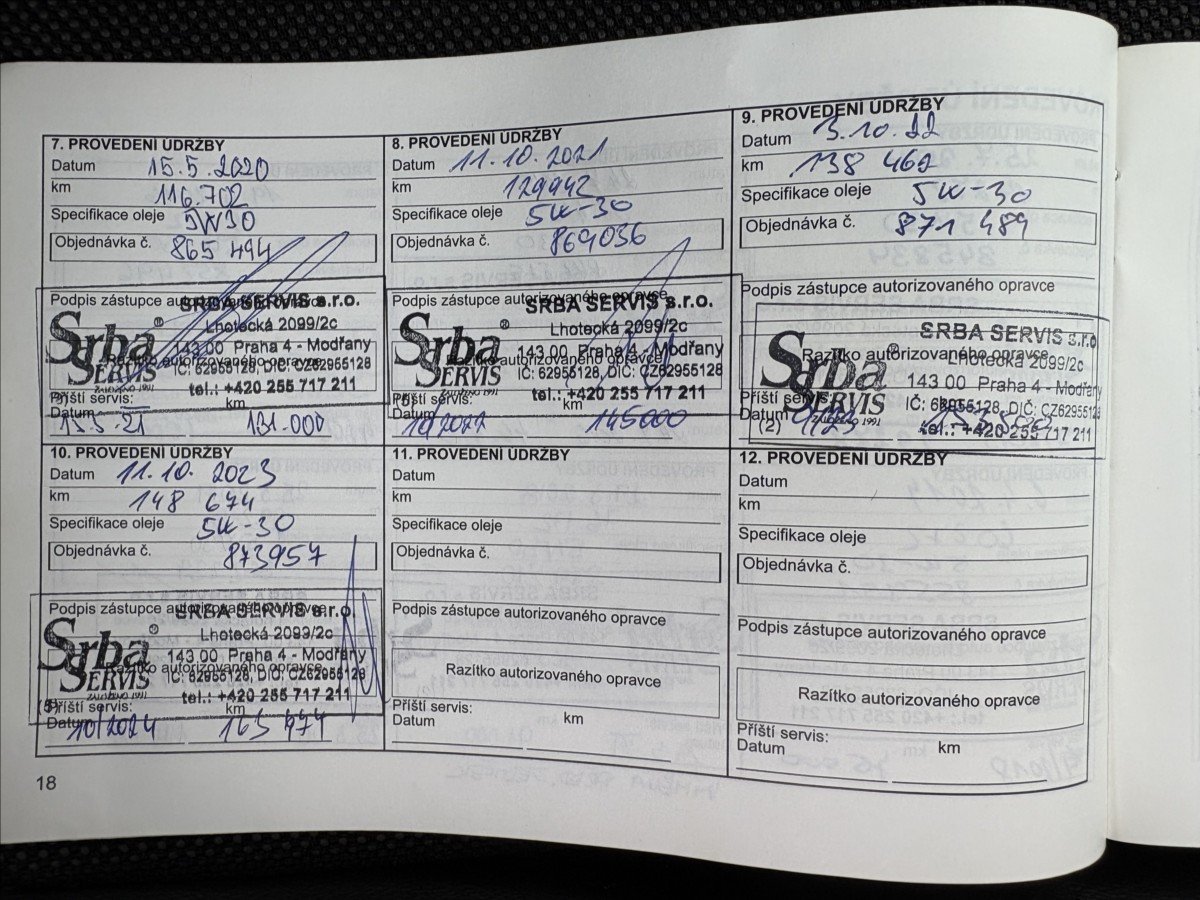 7. PROVEDENÍ ÚDRŽBY
Datum 15.5.2020
km 116.702
Specifikace oleje 5W30
Objednávka č. 865 494
Podpis zástupce autorizovaného opravce
SRBA SERVIS s.r.o.
Srba SERVIS ®
Lhotecká 2099/2c
143 00 Praha 4 - Modřany
Razítko autorizovaného opravce
IČ: 62955128, DIČ: CZ62955128
ZALOŽENO 1991
tel.: +420 255 717 211
Příští servis:
Datum 15.5.21 km 131.000
8. PROVEDENÍ ÚDRŽBY
Datum 11.10.2021
km 129942
Specifikace oleje 5W-30
Objednávka č. 869036
Podpis zástupce autorizovaného opravce
SRBA SERVIS s.r.o.
Srba SERVIS ®
Lhotecká 2099/2c
143 00 Praha 4 - Modřany
Razítko autorizovaného opravce
IČ: 62955128, DIČ: CZ62955128
ZALOŽENO 1991
tel.: +420 255 717 211
Příští servis:
Datum 10/2022 km 145000
9. PROVEDENÍ ÚDRŽBY
Datum 3.10.22
km 138 462
Specifikace oleje 5W-30
Objednávka č. 871 489
Podpis zástupce autorizovaného opravce
SRBA SERVIS s.r.o.
Srba SERVIS
Razítko autorizovaného opravce
Lhotecká 2099/2c
143 00 Praha 4 - Modřany
IČ: 62955128, DIČ: CZ62955128
ZALOŽENO 1991
tel.: +420 255 717 211
Příští servis: km
Datum
(2)
10. PROVEDENÍ ÚDRŽBY
Datum 11.10.2023
km 148 674
Specifikace oleje 5W-30
Objednávka č. 873957
Podpis zástupce autorizovaného opravce
SRBA SERVIS s.r.o.
Srba SERVIS ®
Lhotecká 2099/2c
143 00 Praha 4 - Modřany
Razítko autorizovaného opravce
IČ: 62955128, DIČ: CZ62955128
ZALOŽENO 1991
tel.: +420 255 717 211
Příští servis:
Datum 10/2024 km 163 674
11. PROVEDENÍ ÚDRŽBY
Datum
km
Specifikace oleje
Objednávka č.
Podpis zástupce autorizovaného opravce
Razítko autorizovaného opravce
Příští servis:
Datum km
12. PROVEDENÍ ÚDRŽBY
Datum
km
Specifikace oleje
Objednávka č.
Podpis zástupce autorizovaného opravce
Razítko autorizovaného opravce
Příští servis:
Datum km
18